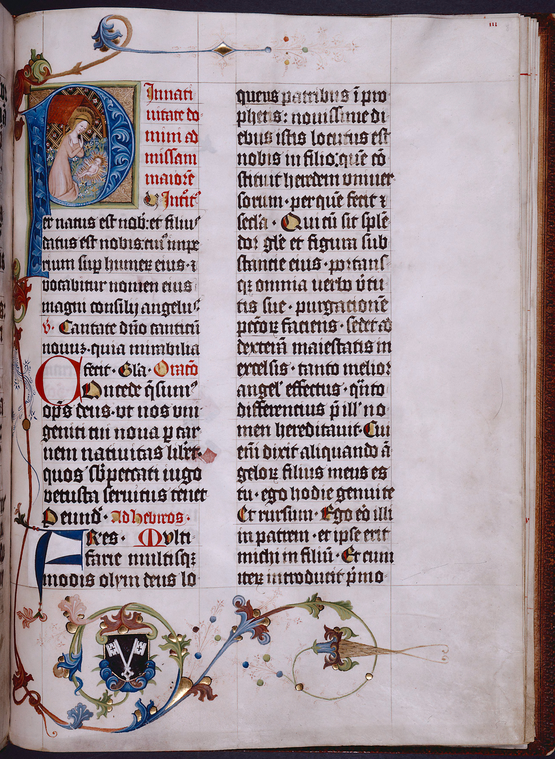 In nati
uitate do
mini ad
missam
maiorē
Introit⁹
Puer natus est nob: et filiꝰ
datus est nobis: cuiꝰ impe
rium suꝑ humeꝝ eius · ⁊
vocabitur nomen eius
magni consilij angelꝰ
v̄. Cantate dn̄o canticū
nouū · quia mirabilia
fecit · Gla · Oratō
Concede q̄sumꝰ
op̄s deus · vt nos vni
geniti tui noua ꝑ car
nem natiuitas liberꝫ
quos sb̓ peccati iugo
vetusta seruitus tenet
Ꝑ eund̄ · Ad hebreos ·
Fr̄es · Multi
farie multisqꝫ
modis olym deus lo
quens patribus ī pro
phetis: nouissime di
ebus istis locutus est
nobis in filio: quē cō
stituit heredem vniuer
sorum · per quē fecit ⁊
sēla · Qui cū sit splē
dor gl̄e et figura sub
stantie eius · portans
qꝫ omnia verbo v̄tu
tis sue · purgationē
pctōꝝ faciens · sedet ad
dexterā maiestatis in
excelsis · tanto melior
angel̓ effectus · q̄nto
differentius p̄ ill̓ no
men hereditauit · Cui
em̄ dixit aliquando ā
geloꝝ filius meus es
tu · ego hodie genui te
Et rursum · Ego eō illi
in patrem · et ipse erit
michi in filiū · Et cum
iteꝝ introducit p̄mo